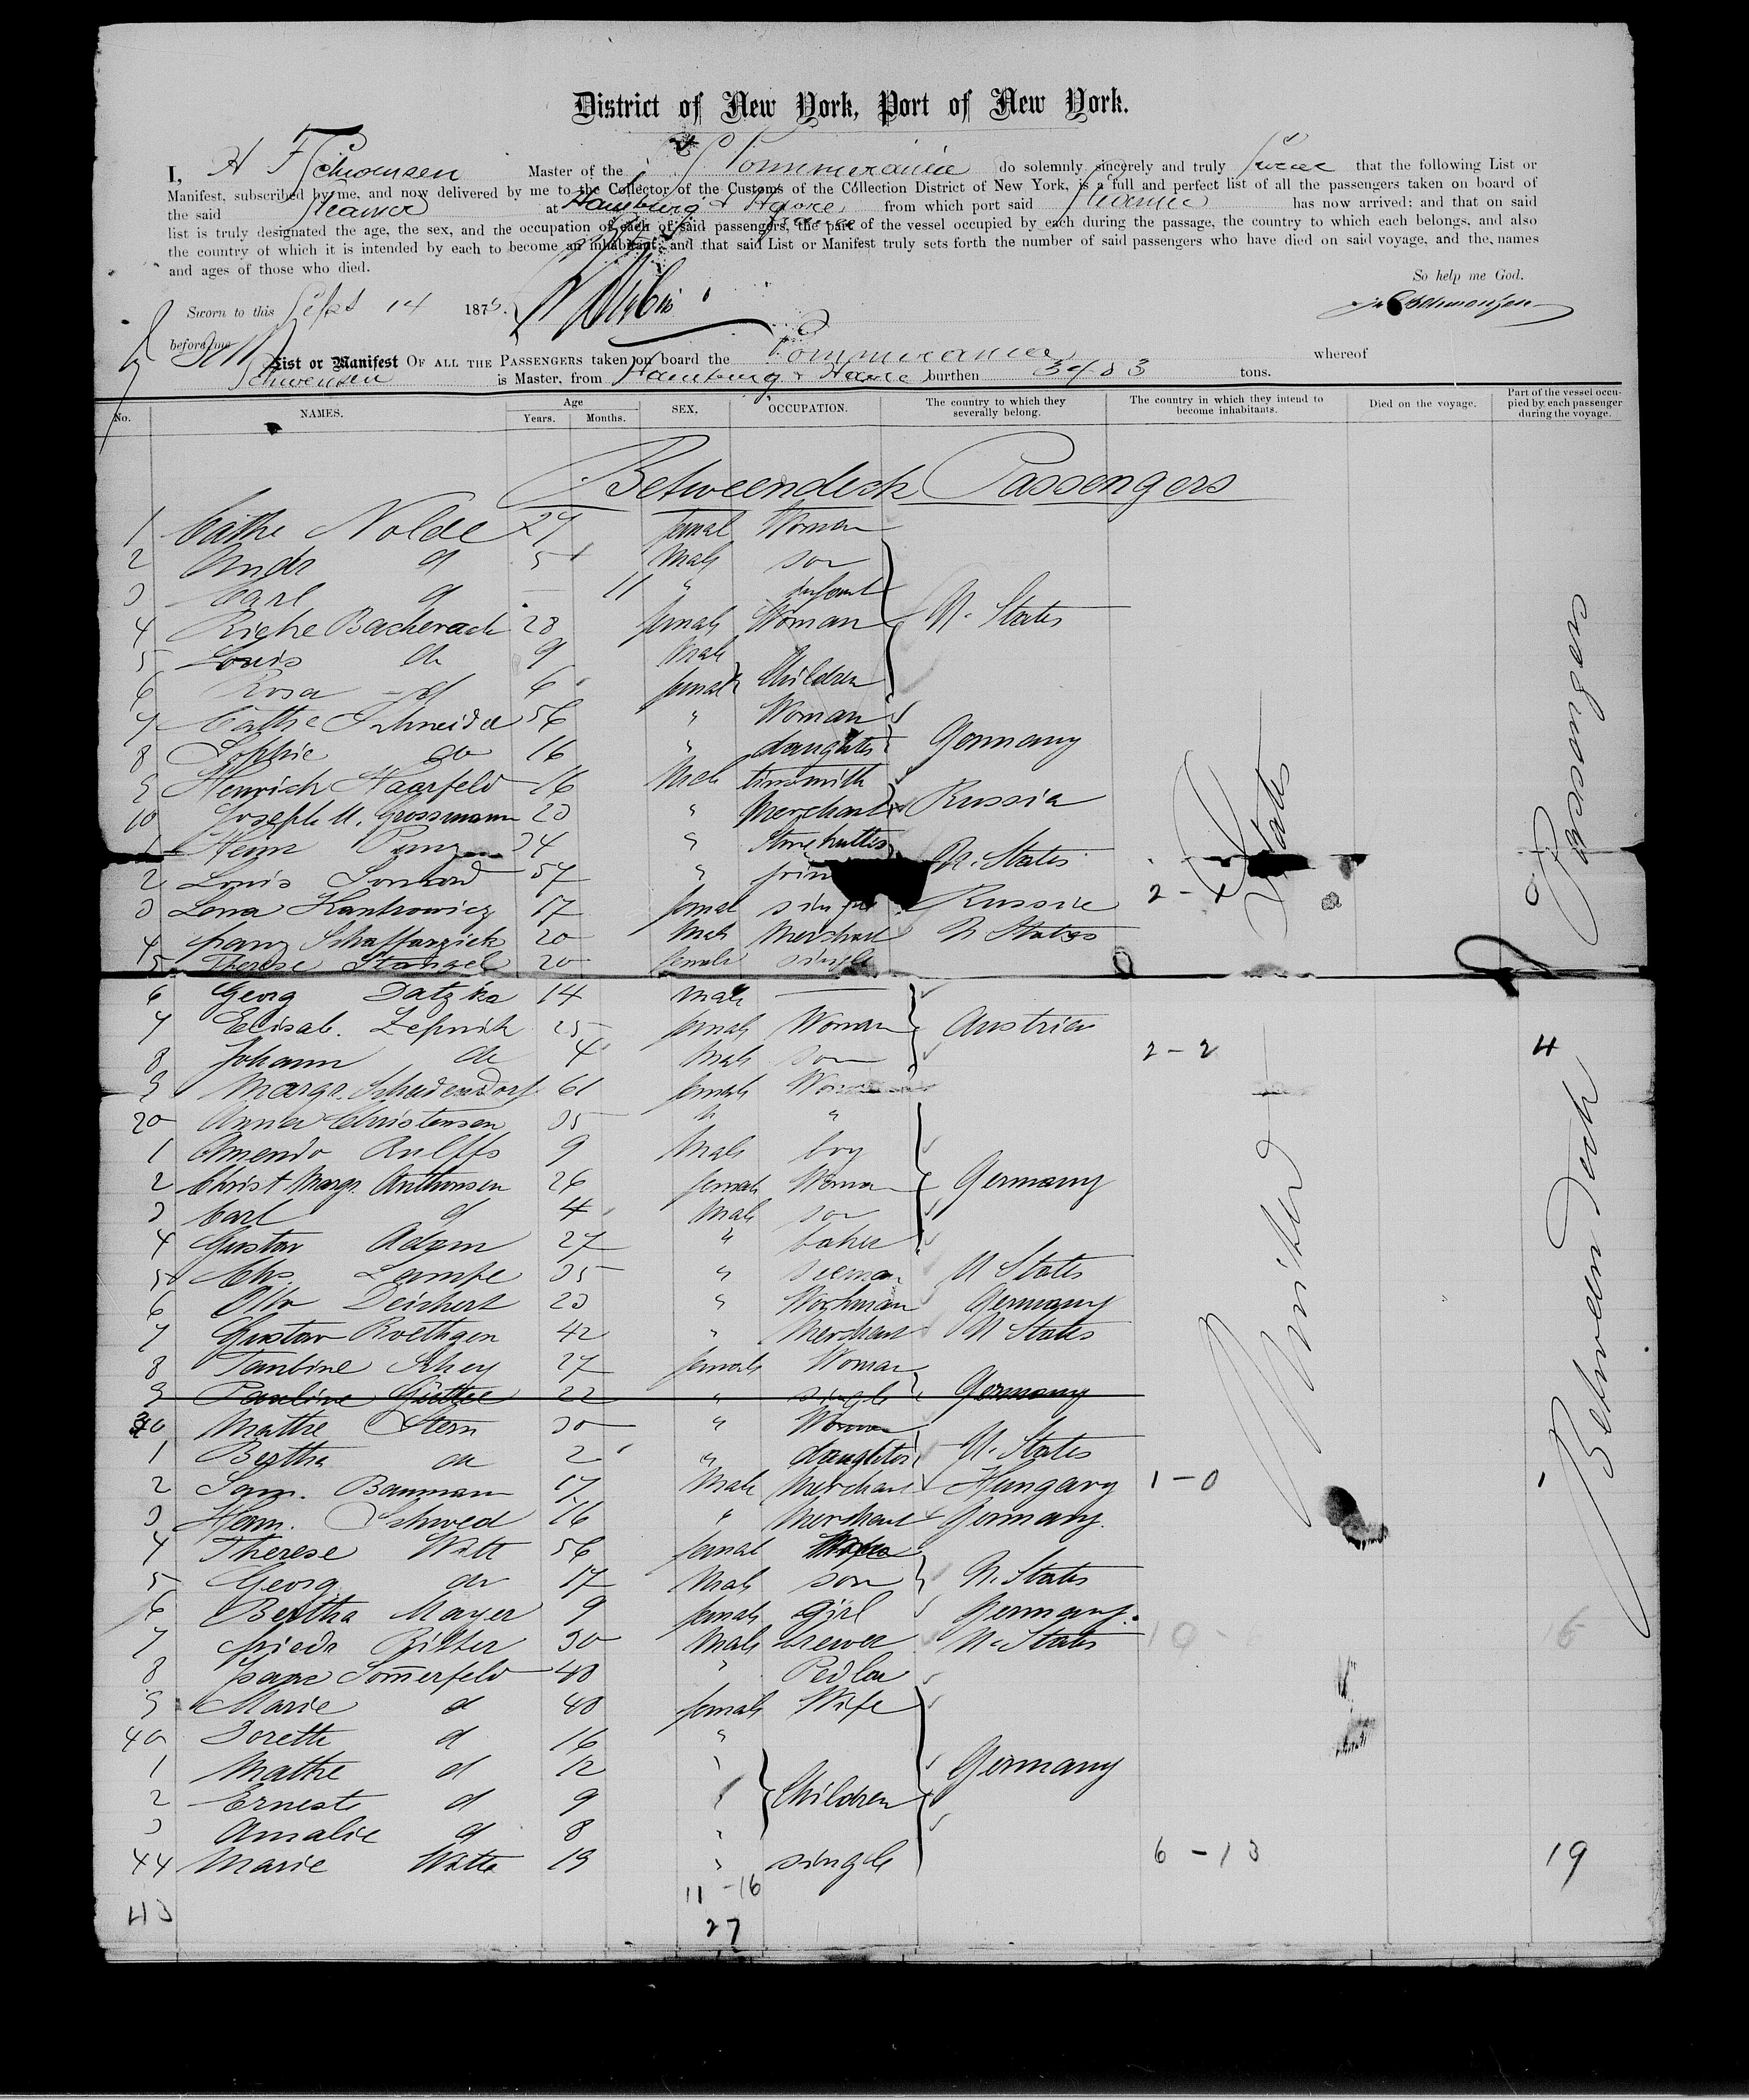 District of New York, Port of New York.
I, H F Schwensen Master of the S S Pommerania do solemnly, sincerely and truly swear that the following List or
Manifest, subscribed by me, and now delivered by me to the Collector of the Customs of the Collection District of New York, is a full and perfect list of all the passengers taken on board of
the said Steamer at Hamburg & Havre from which port said Steamer has now arrived; and that on said
list is truly designated the age, the sex, and the occupation of each of said passengers, the part of the vessel occupied by each during the passage, the country to which each belongs, and also
the country of which it is intended by each to become an inhabitant; and that said List or Manifest truly sets forth the number of said passengers who have died on said voyage, and the names
and ages of those who died.
So help me God.
Sworn to this Sept 14 187
before me
List or Manifest OF ALL THE PASSENGERS taken on board the Pommerania whereof
Schwensen is Master, from Hamburg & Havre burthen tons.
No. NAMES. Age Years. Months. SEX. OCCUPATION. The country to which they severally belong. The country in which they intend to become inhabitants. Died on the voyage. Part of the vessel occupied by each passenger during the voyage.
Betweendeck Passengers
1 Cathe Nolde 27 femal Woman
2 Andr d 5 Male son
3 Carl d — 11 " infant
4 Rieke Bacherach 28 female Woman U. States
5 Louis do 9 Male
6 Rosa d 6 female Children
7 Cathe Schneider 56 " Woman
8 Sophie do 16 " daughter Germany
9 Henrich Haarfeld 16 Male tinsmith
10 Joseph U. Grossmann 23 " Merchant Russia
1 Heinr 24 "
2 Louis 57 " U. States
3 Lena Kantrowicz 17 femal single Russia 2 -
4 Franz Schaffarzick 20 Male Merchant U States
5 Therese Stangel 20 female single
6 Georg Datzka 14 male —
7 Elisab. Zepnik 25 female Woman Austria
8 Johann do 4 Male son 2 - 2 4
9 Margr. Scheidendorf 61 female Woman
20 Anna Christensen 35 " "
1 Amendo Rulffs 9 Male boy
2 Christ Margr. Anthonsen 26 female Woman Germany
3 Carl d 4 Male son
4 Gustav Adam 27 " baker
5 Chs. Lampe 35 " seeman U States
6 Otto Deichert 23 " Workman Germany
7 Gustav Roethgen 42 " Merchant U States
8 Schey 27 female Woman
9 Pauline Güttee 22 " single Germany
30 Mathe Stern 30 " Woman
1 Bertha do 2 " daughter U. States
2 Sam. Baumann 17 Male Merchant Hungary 1 - 0 1
3 Herm. Schwed 16 " Merchant Germany.
4 Therese Witt 56 femal
5 Georg do 17 Male son U. States
6 Bertha Mayer 9 female Girl Germany.
7 Friedr Ritter 30 Male brewer U. States
8 Isaac Sommerfeld 40 " Pedlar
9 Marie d 40 female Wife
40 Dorette d 16 "
1 Mathe d 12 " Germany
2 Ernest d 9 " Children
3 Amalie d 8 "
44 Marie Witte 19 " single 6 - 13 19
43 11 - 16
27
United States
Between Deck Passengers